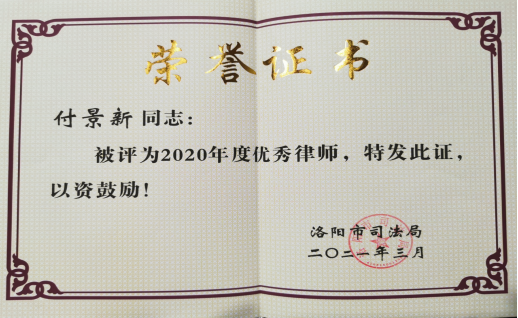 荣誉证书
付景新同志：
被评为2020年度优秀律师，特发此证，
以资鼓励！
洛阳市司法局
二〇二一年三月